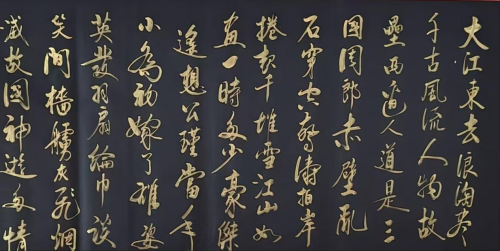 大江東去浪淘盡
千古風流人物故
壘西邊人道是三
國周郎赤壁亂
石穿空驚濤拍岸
捲起千堆雪江山如
畫一時多少豪傑
遙想公瑾當年
小喬初嫁了雄姿
英發羽扇綸巾談
笑間檣艣灰飛煙
滅故國神遊多情